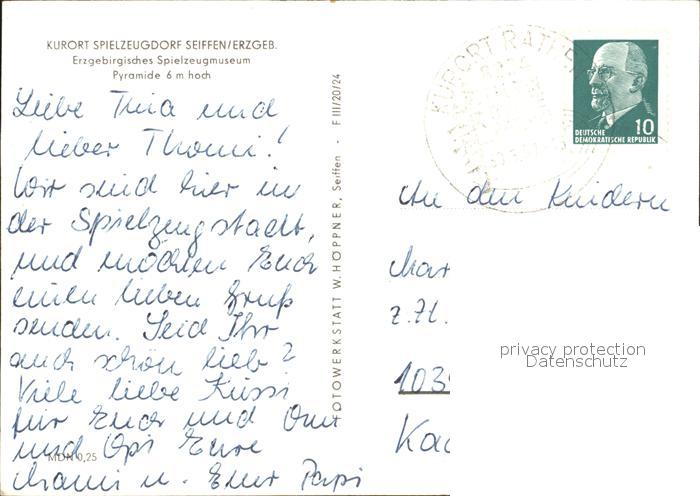 KURORT SPIELZEUGDORF SEIFFEN/ERZGEB.
Erzgebirgisches Spielzeugmuseum
Pyramide 6 m hoch
Liebe Tina und
lieber Thomi!
Wir sind hier in
der Spielzeugstadt,
und möchten Euch
einen lieben Gruß
senden. Seid Ihr
auch schön lieb?
Viele liebe Küssi
für Euch und Omi
und Opi Eure
Mami u. Euer Papi
MDN 0,25
FOTOWERKSTATT W. HÖPPNER, Seiffen - F III/20/24
KURORT RATHEN
10
DEUTSCHE
DEMOKRATISCHE REPUBLIK
An den Kindern
Mar
z. Zt.
103
Ka
privacy protection
Datenschutz